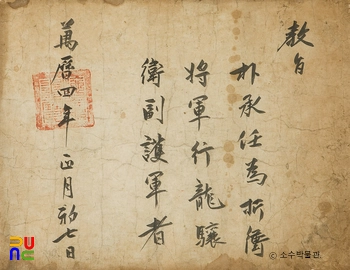 敎旨
朴承任為折衝
將軍行龍驤
衛副護軍者
萬曆四年正月初七日
ⓒ 소수박물관